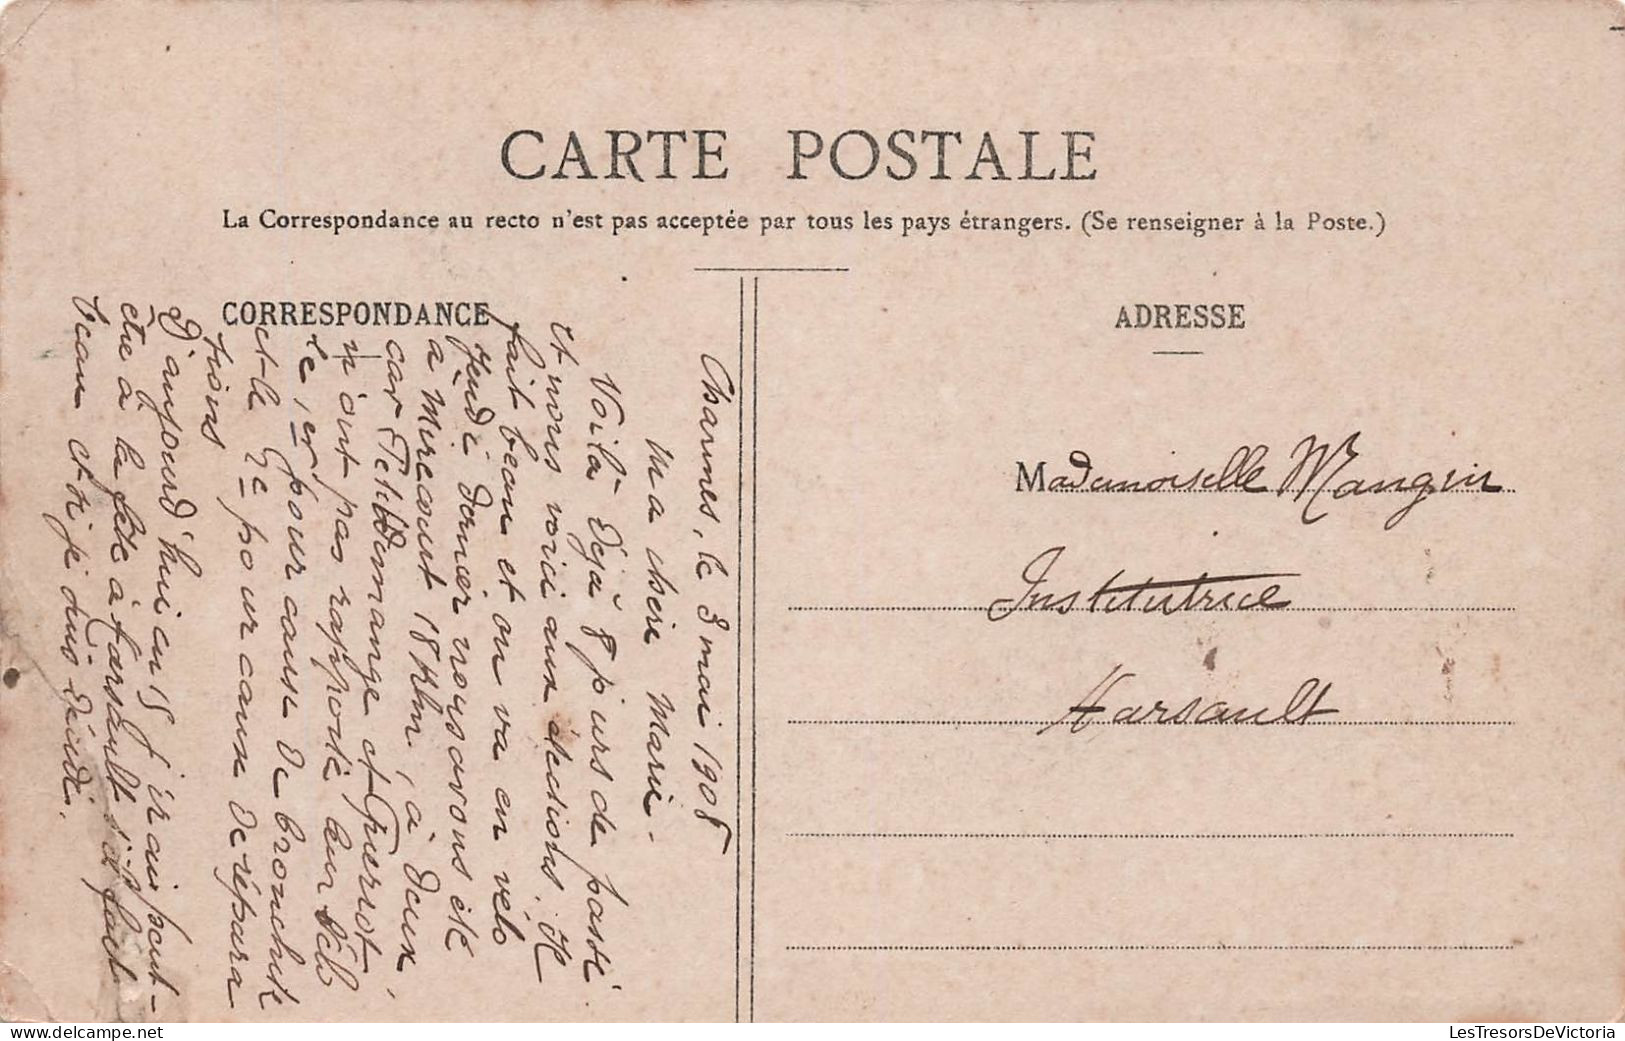 CARTE POSTALE
La Correspondance au recto n'est pas acceptée par tous les pays étrangers. (Se renseigner à la Poste.)
CORRESPONDANCE
Charmes, le 3 mai 1908
Ma chère Marie.
Voilà déjà 8 jours de passé
et nous voici aux élections. Il
fait beau et on va en vélo
Jeudi dernier nous avons été
à Mirecourt 18 Klm, à deux,
car Petitdemange et Pierrot
n'ont pas rapporté leur vélo
le 1er pour cause de bronchite
et le 2e pour cause de répara
tions
D'aujourd'hui en 15 j'irai peut-
être à la fête à Harsault s'il fait
beau et si je suis décidé.
ADRESSE
Mademoiselle Mangin
Institutrice
Harsault
LesTresorsDeVictoria